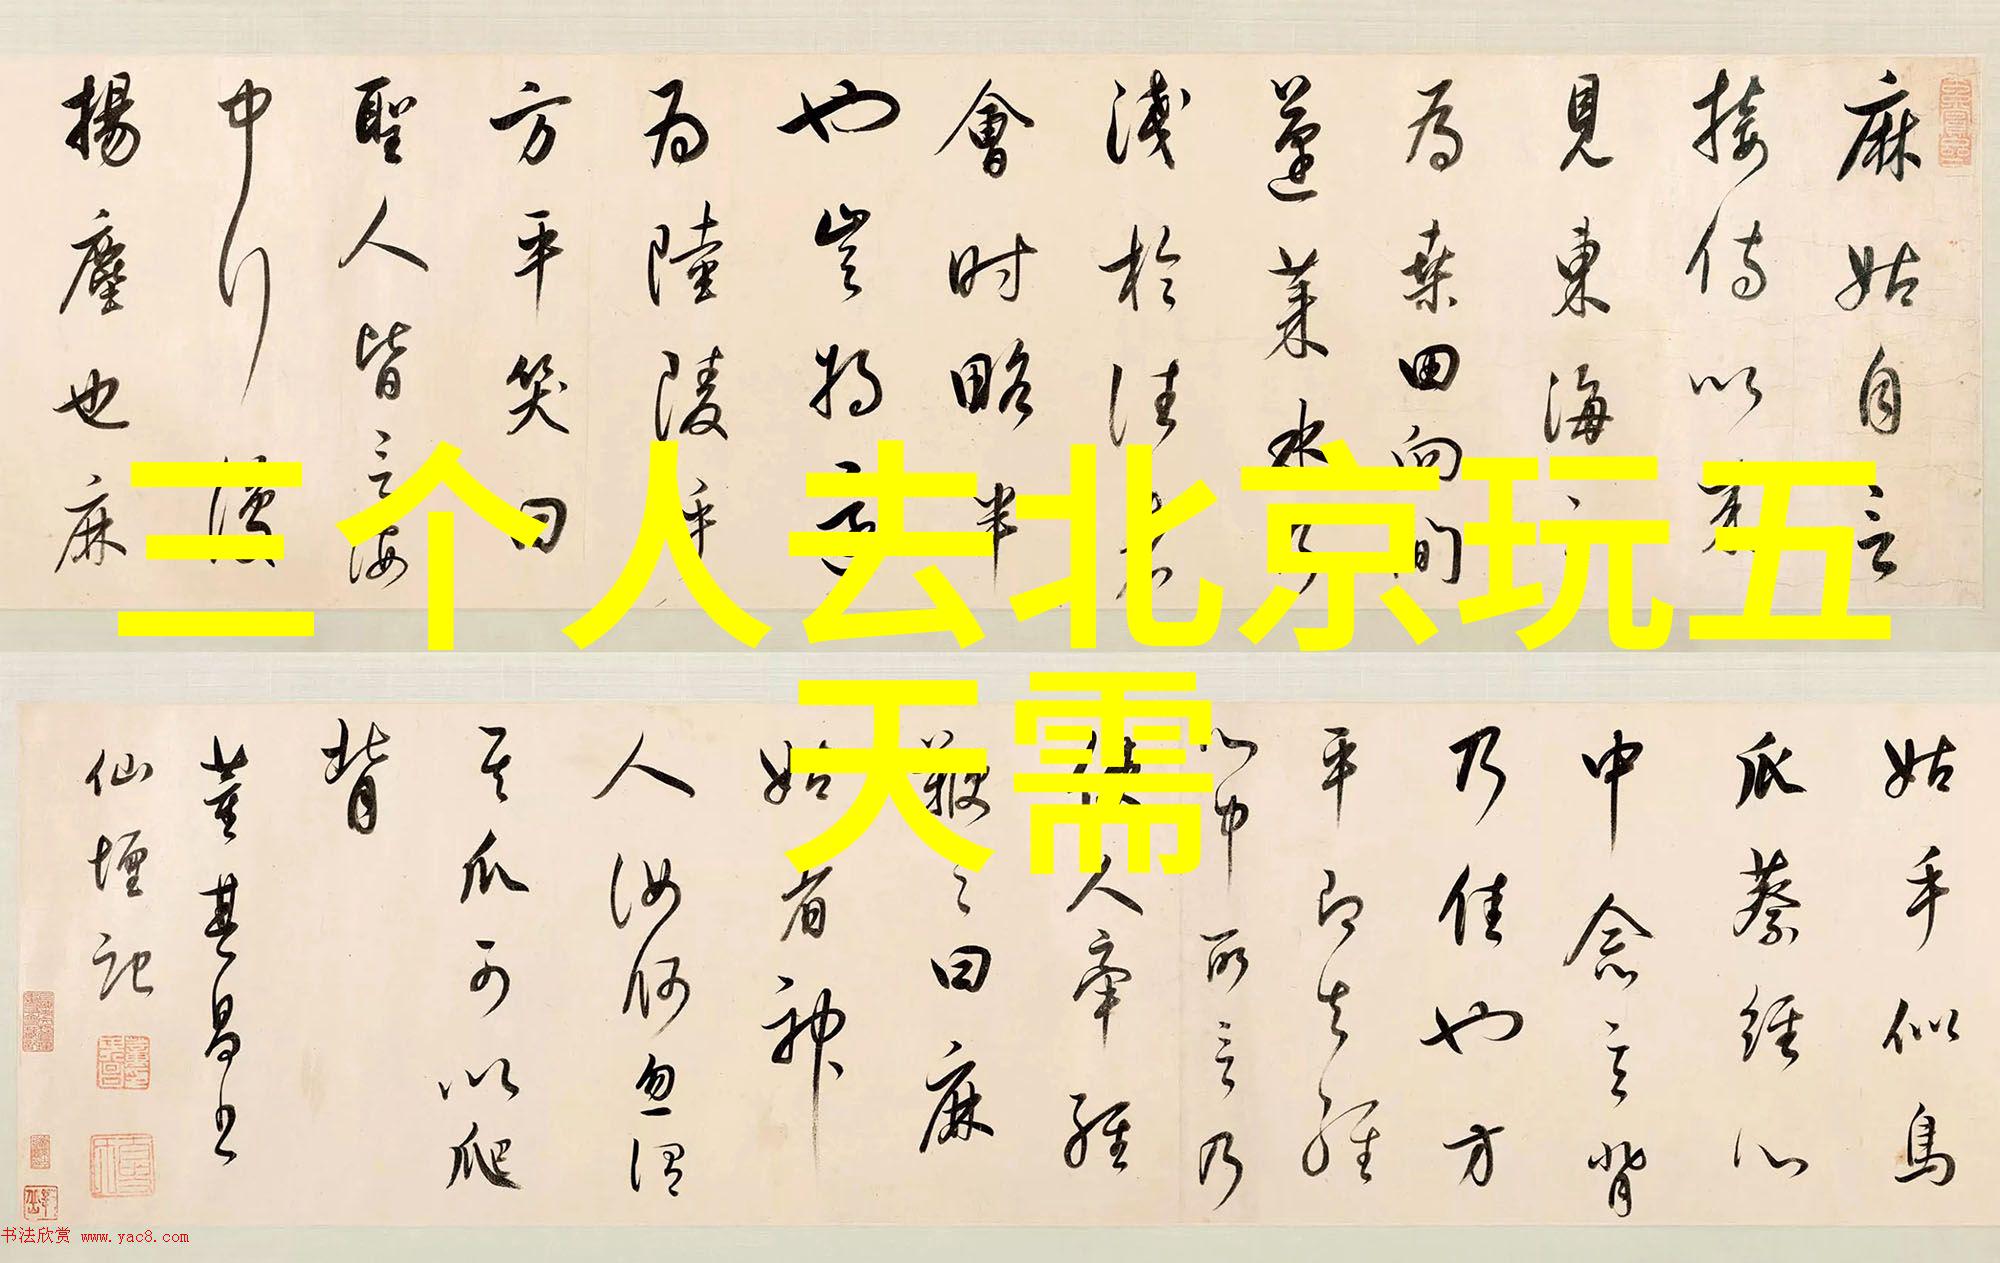 麻姑自言
接侍以來
見東海
為桑田向間
蓬萊水乃
淺於往者
會時略半
也豈將
為陸陵乎
方平笑曰
聖人皆言海
中行復
揚塵也麻
三个人去北京玩五
天需
姑手似鳥
爪蔡經心
中念言背
乃佳也方
平即知經
心中所言乃
使人牽經
鞭之曰麻
姑者神
人汝何忽謂
其爪可以爬
背
董其昌書
仙壇記
书法欣赏 www.yac8.com